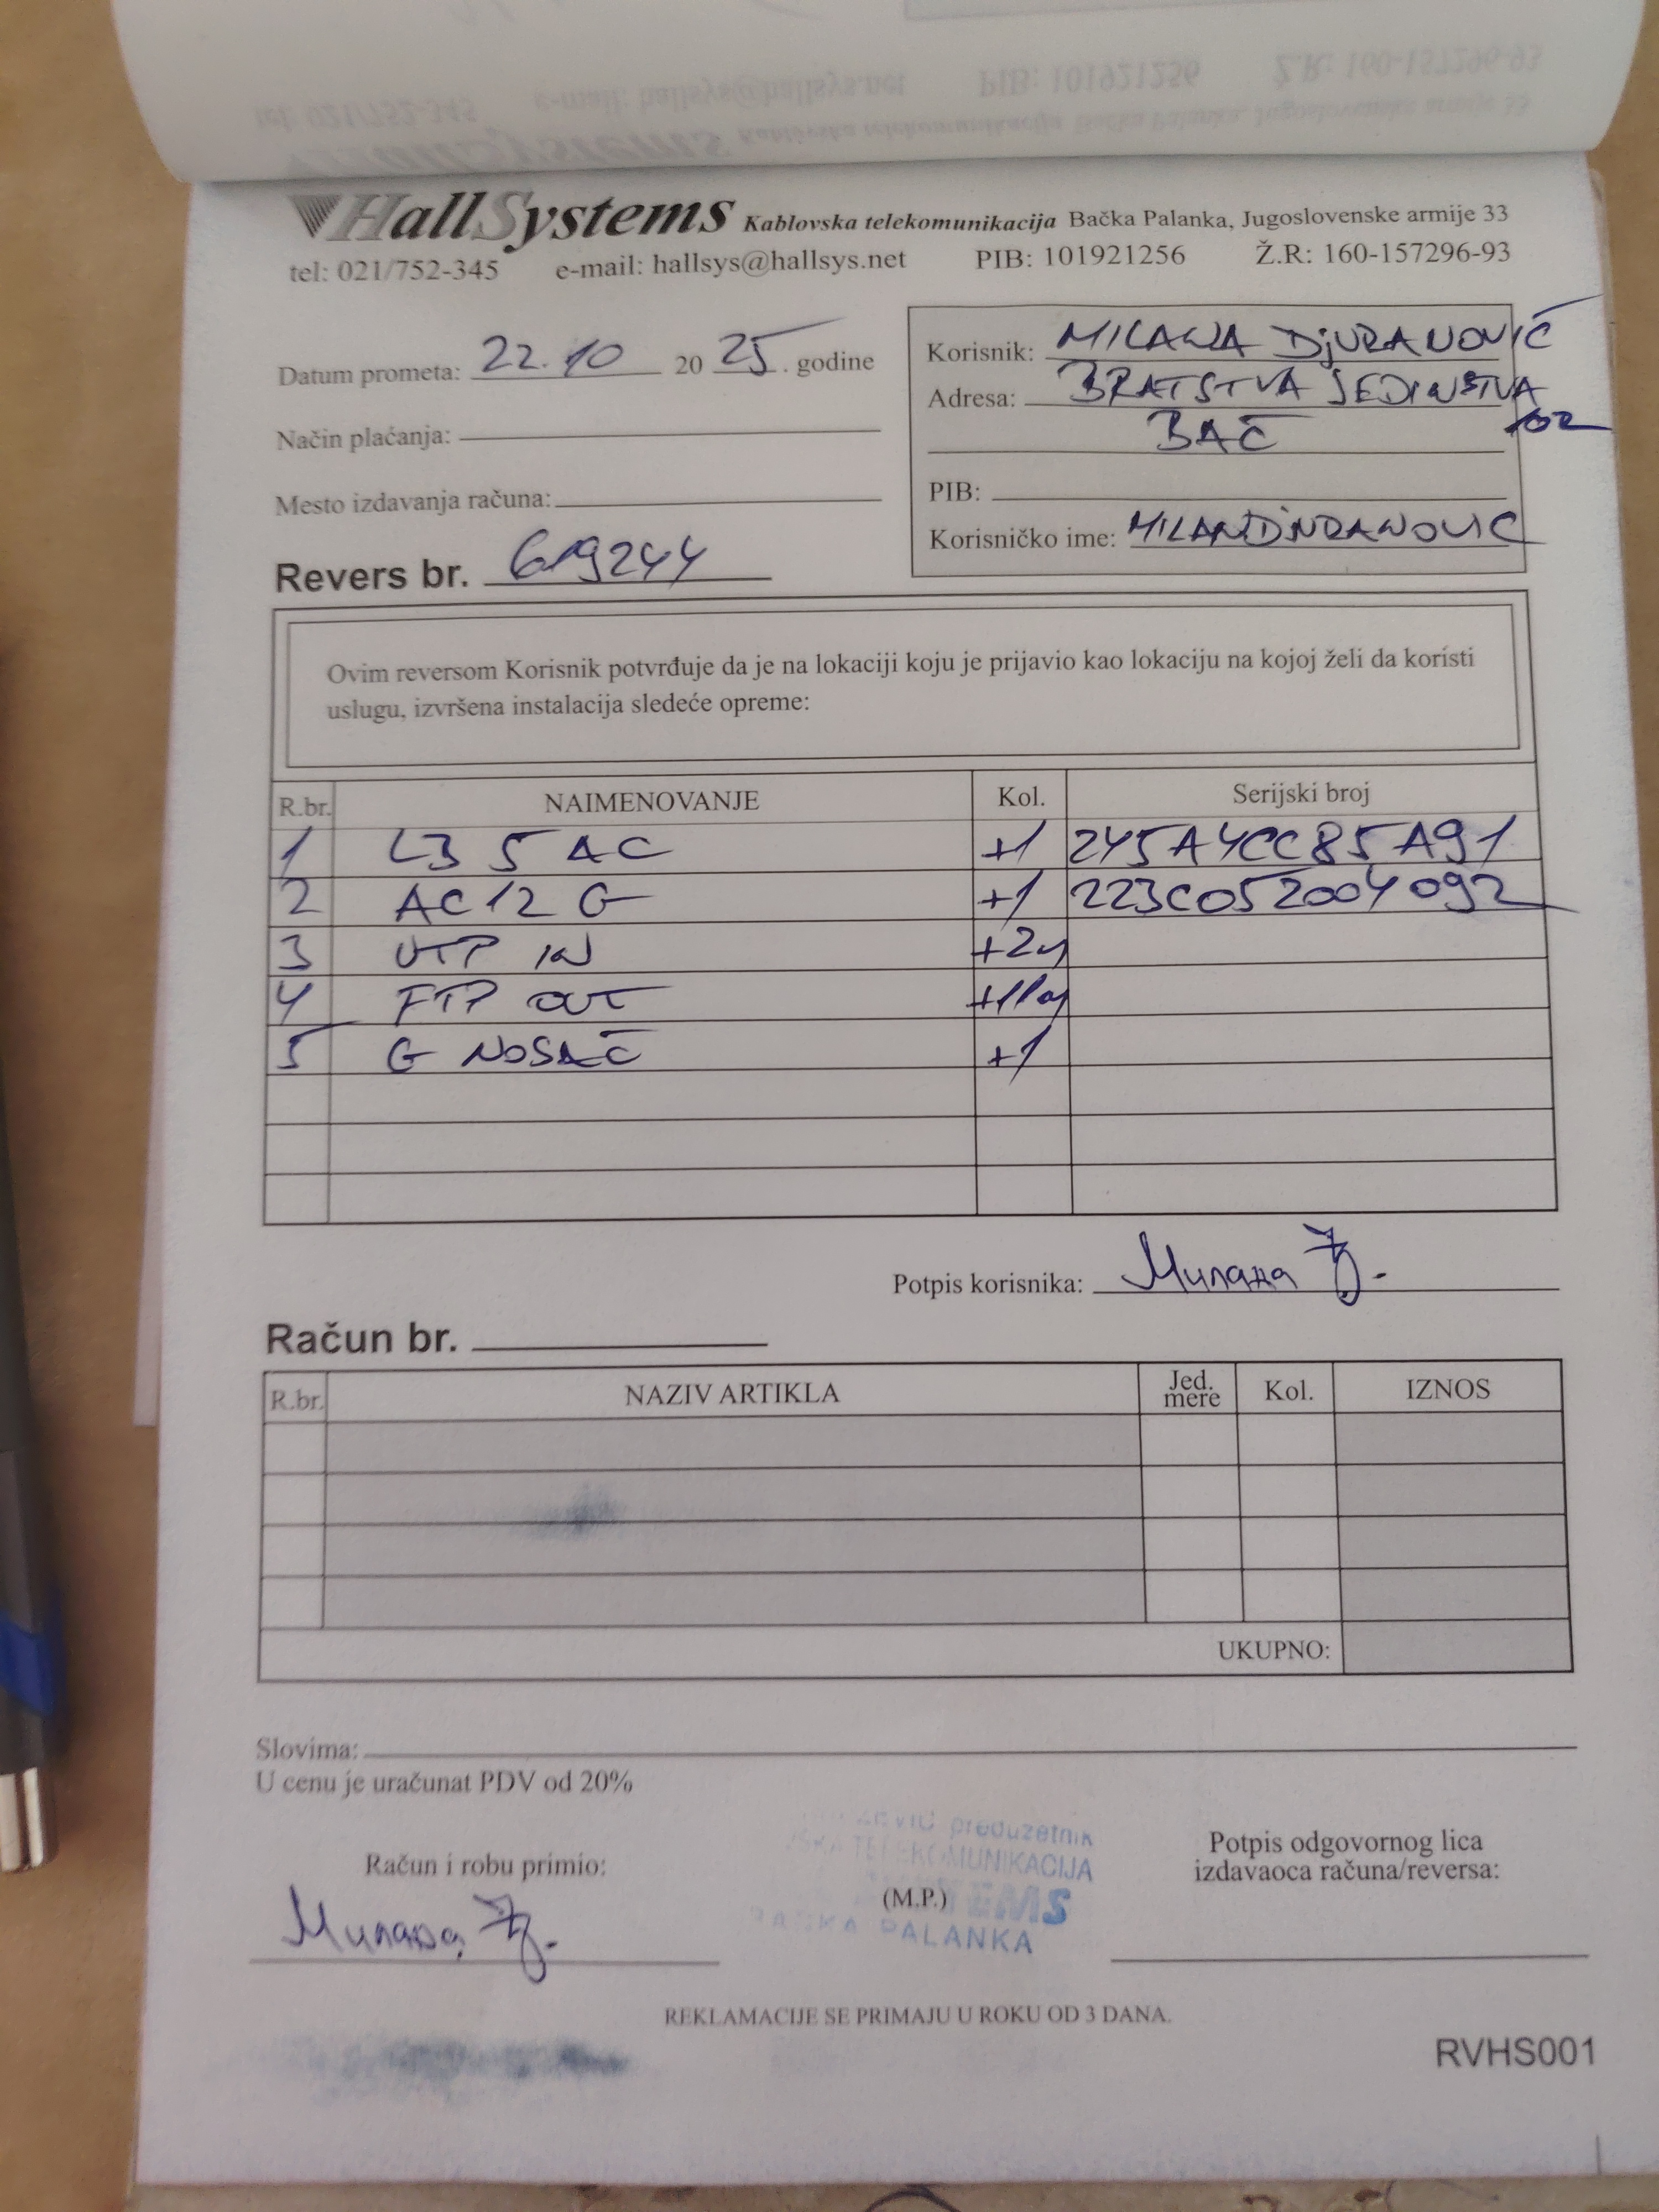 HallSystems Kablovska telekomunikacija Bačka Palanka, Jugoslovenske armije 33
tel: 021/752-345 e-mail: hallsys@hallsys.net PIB: 101921256 Ž.R: 160-157296-93
Datum prometa: 22.10 2025. godine
Način plaćanja:
Mesto izdavanja računa:
Revers br. 619244
Korisnik: MILANA DjURANOVIĆ
Adresa: BRATSTVA JEDINSTVA
102
BAČ
PIB:
Korisničko ime: MILANDjURANOVIC
Ovim reversom Korisnik potvrđuje da je na lokaciji koju je prijavio kao lokaciju na kojoj želi da koristi
uslugu, izvršena instalacija sledeće opreme:
R.br. NAIMENOVANJE Kol. Serijski broj
1 LB 5 AC +1 245A4CC85A91
2 AC12 G +1 223C052004092
3 UTP IN +2m
4 FTP OUT
5 G NOSAČ +1
Potpis korisnika: Милана Ђ.
Račun br.
R.br. NAZIV ARTIKLA Jed. mere Kol. IZNOS
UKUPNO:
Slovima:
U cenu je uračunat PDV od 20%
Račun i robu primio:
Милана Ђ.
preduzetnik
TELEKOMUNIKACIJA
(M.P.)
PALANKA
Potpis odgovornog lica
izdavaoca računa/reversa:
REKLAMACIJE SE PRIMAJU U ROKU OD 3 DANA.
RVHS001